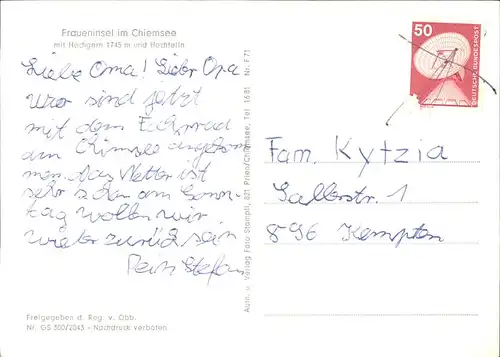 Fraueninsel im Chiemsee
mit Hochgern 1745 m und Hochfelln
Liebe Oma! Lieber Opa
Wir sind jetzt
mit dem Fahrrad
am Chimsee angekom
men. Das Wetter ist
sehr schön am Sonn-
tag wollen wir
wieder zurück sein
Stefan
Freigegeben d. Reg. v. Obb.
Nr. GS 300/2043 - Nachdruck verboten.
Autn. u. Verlag Foto Stampfl, 821 Prien/Chiemsee, Tel. 1681 Nr. F 71
50
DEUTSCHE BUNDESPOST
Fam. Kytzia
Sallerstr. 1
896 Kempten